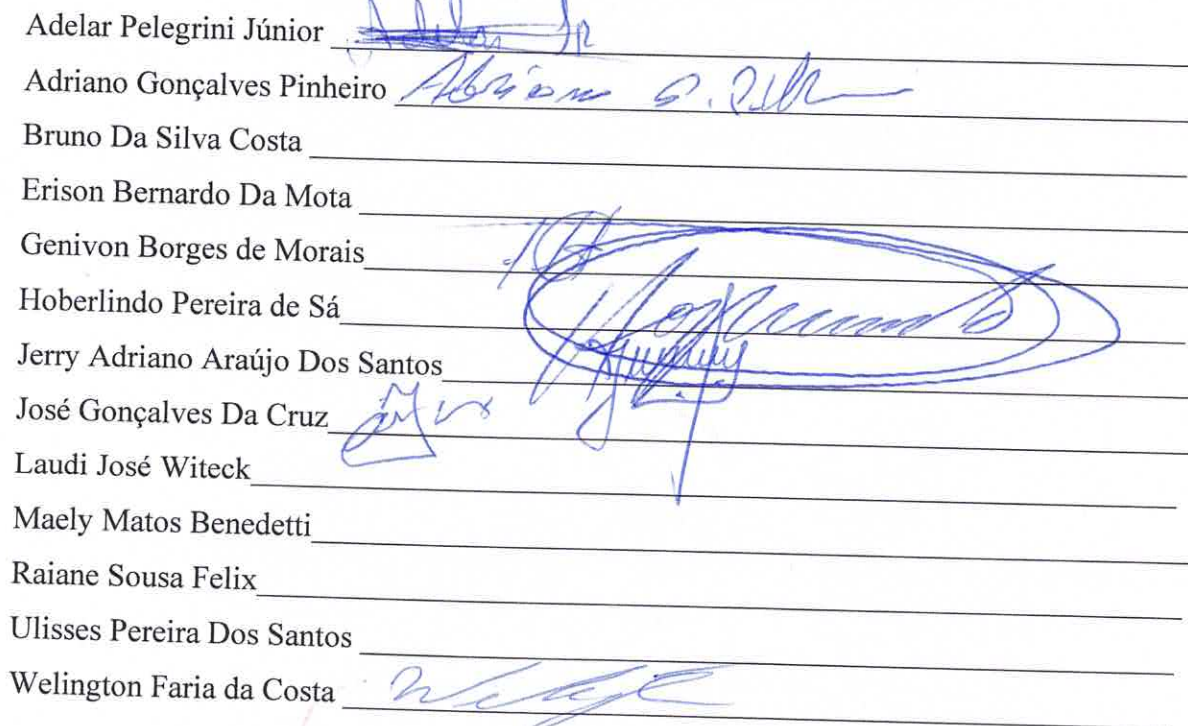 Adelar Pelegrini Júnior Adelar Jr
Adriano Gonçalves Pinheiro Adriano G.
Bruno Da Silva Costa
Erison Bernardo Da Mota
Genivon Borges de Morais
Hoberlindo Pereira de Sá
Jerry Adriano Araújo Dos Santos
José Gonçalves Da Cruz
Laudi José Witeck
Maely Matos Benedetti
Raiane Sousa Felix
Ulisses Pereira Dos Santos
Welington Faria da Costa